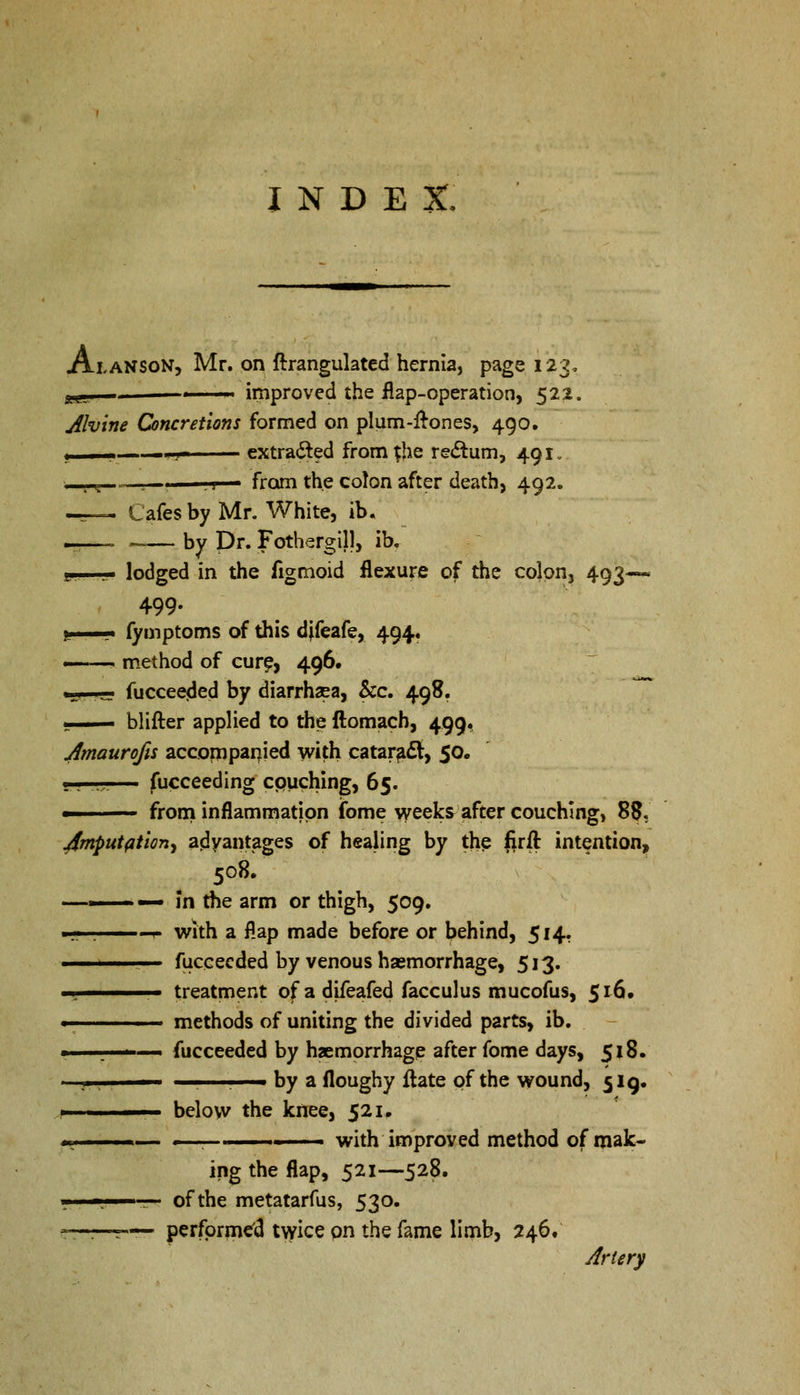 INDEX.
ALANSON, Mr. on ſtrangulated hernia, page 123.
—— —— improved the flap-operation, 522.
Alvine Concretions formed on plum-ſtones, 490.
—— —— extracted from the rectum, 491.
—— —— from the colon after death, 492.
—— Caſes by Mr. White, ib.
—— —— by Dr. Fothergill, ib.
—— lodged in the ſigmoid flexure of the colon, 493—
499.
—— ſymptoms of this diſeaſe, 494.
—— method of cure, 496.
—— ſucceeded by diarrhæa, &c. 498.
—— bliſter applied to the ſtomach, 499.
Amauroſis accompanied with cataract, 50.
—— ſucceeding couching, 65.
—— from inflammation ſome weeks after couching, 88.
Amputation, advantages of healing by the firſt intention,
508.
—— in the arm or thigh, 509.
—— with a flap made before or behind, 514.
—— ſucceeded by venous hæmorrhage, 513.
—— treatment of a diſeaſed ſacculus mucoſus, 516.
—— methods of uniting the divided parts, ib.
—— ſucceeded by hæmorrhage after ſome days, 518.
—— —— by a ſloughy ſtate of the wound, 519.
—— below the knee, 521.
—— —— with improved method of mak-
ing the flap, 521—528.
—— of the metatarſus, 530.
—— performed twice on the ſame limb, 246.
Artery